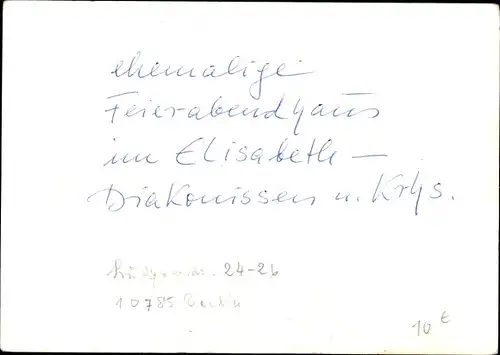 ehemalige
Feierabendhaus
im Elisabeth –
Diakonissen u. Krhs.
24-26
10785 Berlin
10 €